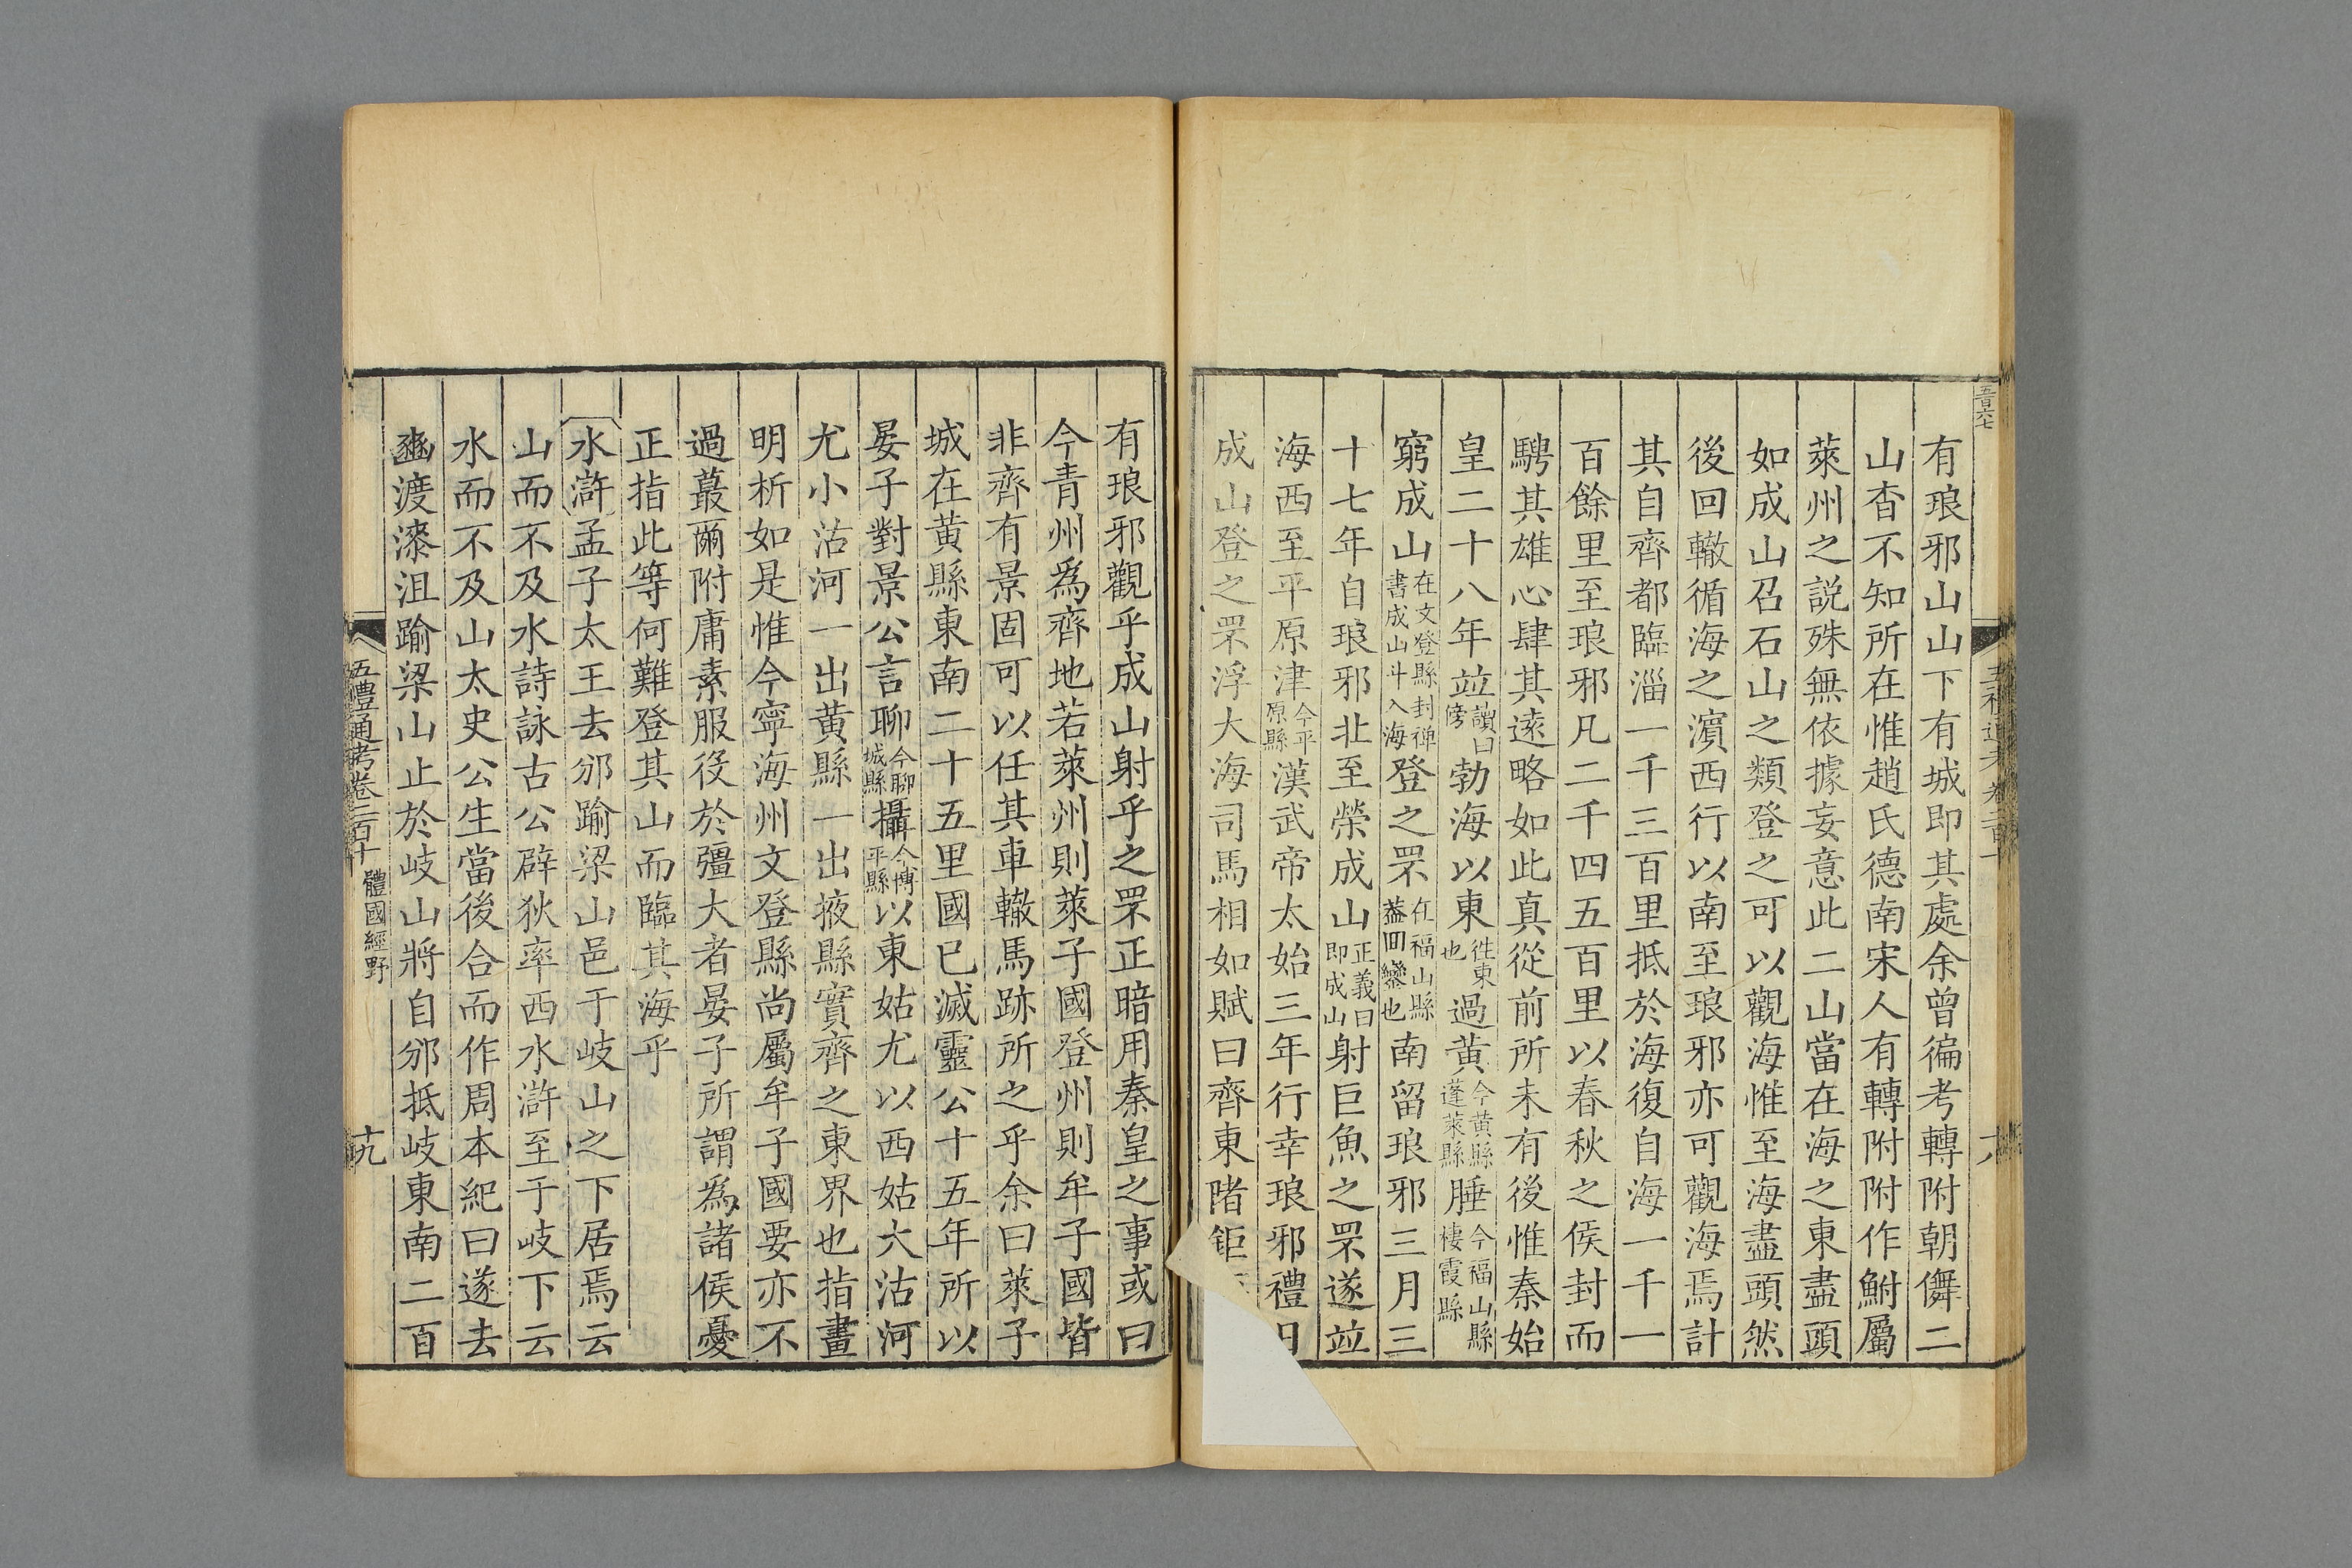 有琅邪山山下有城即其處余曾徧考轉附朝儛二
山杳不知所在惟趙氏德南宋人有轉附附作鮒屬
萊州之説殊無依據妄意此二山當在海之東盡頭
如成山召石山之類登之可以觀海惟至海盡頭然
後回轍循海之濵西行以南至琅邪亦可觀海焉計
其自齊都臨淄一千三百里抵於海復自海一千一
百餘里至琅邪凡二千四五百里以春秋之侯封而
騁其雄心肆其逺略如此真從前所未有後惟秦始
皇二十八年竝讀曰傍勃海以東徃東也過黄今黄縣蓬萊縣腄今福山縣棲霞縣
窮成山在文登縣封禅書成山斗入海登之罘在福山縣葢回巒也南留琅邪三月三
十七年自琅邪北至榮成山正義曰即成山射巨魚之罘遂竝
海西至平原津今平原縣漢武帝太始三年行幸琅邪禮日
成山登之罘浮大海司馬相如賦曰齊東陼鉅
有琅邪觀乎成山射乎之罘正暗用秦皇之事或曰
今青州爲齊地若萊州則萊子國登州則牟子國皆
非齊有景固可以任其車轍馬跡所之乎余曰萊子
城在黄縣東南二十五里國已滅靈公十五年所以
晏子對景公言聊今聊城縣攝今博平縣以東姑尤以西姑大沽河
尤小沽河一出黄縣一出掖縣實齊之東界也指畫
明析如是惟今寧海州文登縣尚屬牟子國要亦不
過蕞爾附庸素服役於彊大者晏子所謂爲諸侯憂
正指此等何難登其山而臨其海乎
水滸孟子太王去邠踰梁山邑于岐山之下居焉云
山而不及水詩詠古公辟狄率西水滸至于岐下云
水而不及山太史公生當後合而作周本紀曰遂去
豳渡漆沮踰梁山止於岐山將自邠抵岐東南二百
五禮通考卷二百十 體國經野 十九